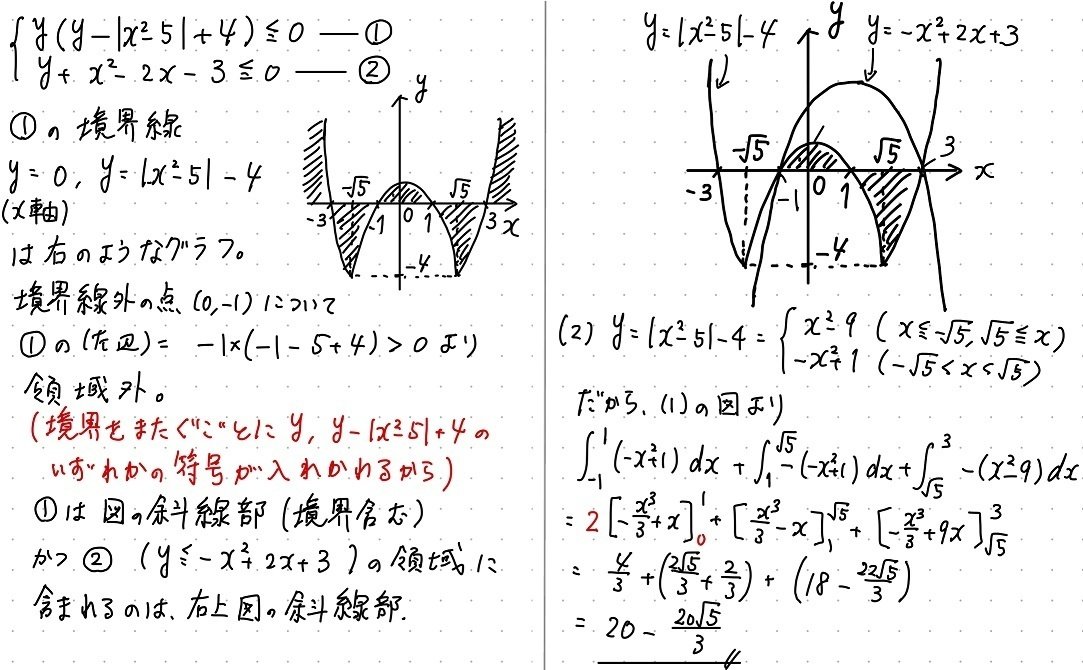 { y(y-|x²-5|+4)≦0 ― ①
y+x²-2x-3≦0 ― ②
①の境界線
y=0, y=|x²-5|-4
(x軸)
は右のようなグラフ。
境界線外の点(0,-1)について
①の(左辺)= -1×(-1-5+4)>0より
領域外。
(境界をまたぐごとにy, y-|x²-5|+4の
いずれかの符号が入れかわるから)
①は図の斜線部(境界含む)
かつ② (y≦-x²+2x+3)の領域に
含まれるのは、右上図の斜線部.
y
-√5 √5
-3 -1 0 1 3 x
-4
y=|x²-5|-4 y y=-x²+2x+3
-√5 √5 3
-3 -1 0 1 x
-4
(2) y=|x²-5|-4= { x²-9 (x≦-√5, √5≦x)
-x²+1 (-√5<x<√5)
だから、(1)の図より
∫₋₁¹(-x²+1)dx + ∫₁^√5 -(-x²+1)dx + ∫_√5³ -(x²-9)dx
= 2[-x³/3+x]₀¹ + [x³/3-x]₁^√5 + [-x³/3+9x]_√5³
= 4/3 + (2√5/3 + 2/3) + (18 - 22√5/3)
= 20 - 20√5/3